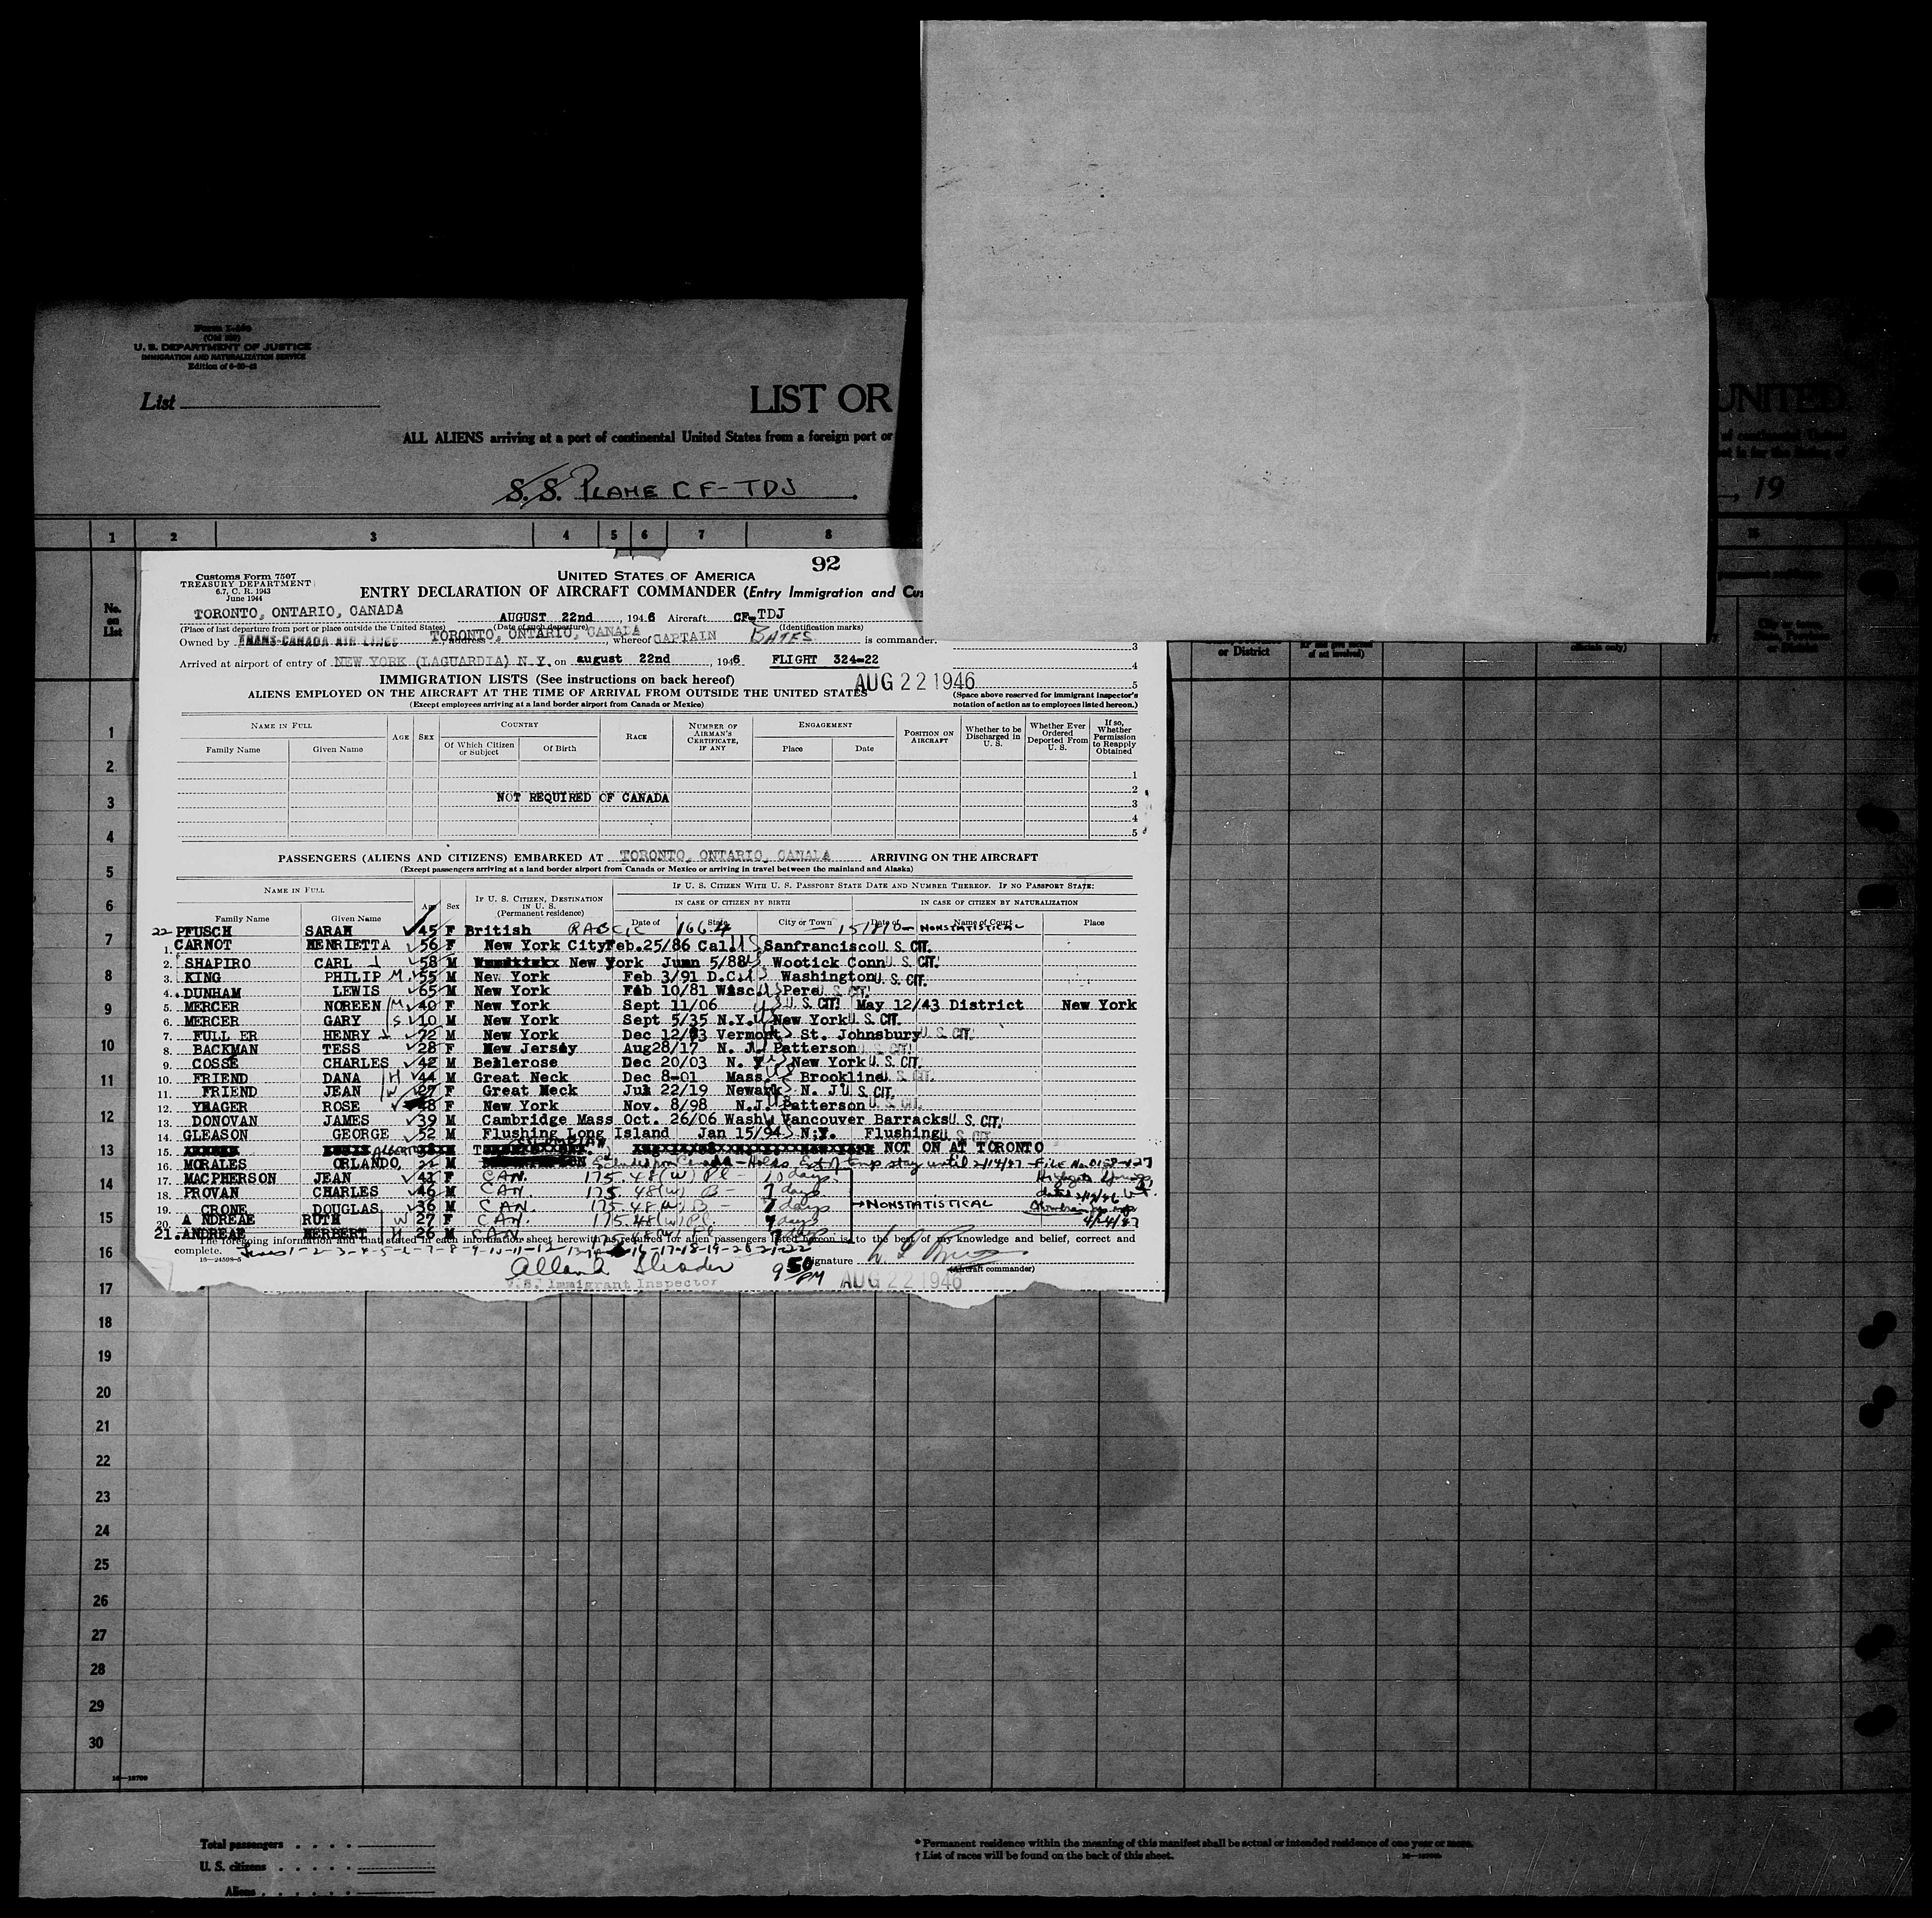 Form I-
U. S. DEPARTMENT OF JUSTICE
IMMIGRATION AND NATURALIZATION SERVICE
Edition of
List
LIST OR
UNITED
ALL ALIENS arriving at a port of continental United States from a foreign port or
of continental United
S. S. PLANE CF-TDJ
, 19
1 2 3 4 5 6 7 8
92
Customs Form 7507
TREASURY DEPARTMENT
6.7, C. R. 1943
June 1944
UNITED STATES OF AMERICA
ENTRY DECLARATION OF AIRCRAFT COMMANDER (Entry Immigration and Cus
TORONTO, ONTARIO, CANADA AUGUST 22nd 1946 Aircraft CF-TDJ
(Place of last departure from port or place outside the United States) (Date of such departure) (Identification marks)
Owned by TRANS-CANADA AIR LINES, address TORONTO, ONTARIO, CANADA, whereof CAPTAIN BATES is commander.
3
Arrived at airport of entry of NEW YORK (LAGUARDIA) N.Y. on august 22nd, 1946 FLIGHT 324-22
4
IMMIGRATION LISTS (See instructions on back hereof)
AUG 22 1946
5
ALIENS EMPLOYED ON THE AIRCRAFT AT THE TIME OF ARRIVAL FROM OUTSIDE THE UNITED STATES
(Except employees arriving at a land border airport from Canada or Mexico)
(Space above reserved for immigrant inspector's
notation of action as to employees listed hereon.)
No. on List
City or town, State, Province or District
or District
officials only)
NAME IN FULL AGE SEX COUNTRY RACE NUMBER OF AIRMAN'S CERTIFICATE, IF ANY ENGAGEMENT POSITION ON AIRCRAFT Whether to be Discharged in U. S. Whether Ever Ordered Deported From U. S. If so, Whether Permission to Reapply Obtained
Family Name Given Name Of Which Citizen or Subject Of Birth Place Date
1
2
NOT REQUIRED OF CANADA
3
4
5
PASSENGERS (ALIENS AND CITIZENS) EMBARKED AT TORONTO, ONTARIO, CANADA ARRIVING ON THE AIRCRAFT
(Except passengers arriving at a land border airport from Canada or Mexico or arriving in travel between the mainland and Alaska)
NAME IN FULL Age Sex IF U. S. CITIZEN, DESTINATION IN U. S. (Permanent residence) IF U. S. CITIZEN WITH U. S. PASSPORT STATE DATE AND NUMBER THEREOF. IF NO PASSPORT STATE:
IN CASE OF CITIZEN BY BIRTH IN CASE OF CITIZEN BY NATURALIZATION
Family Name Given Name Date of State City or Town Date of Name of Court Place
22 PFUSCH SARAH 45 F British NONSTATISTICAL
1. CARNOT HENRIETTA 56 F New York City Feb.25/86 Cal. US Sanfrancisco U. S. CIT.
2. SHAPIRO CARL 58 M New York Juan 5/88 Wootick Conn U. S. CIT.
3. KING PHILIP M 55 M New York Feb 3/91 D.C. US Washington U. S. CIT.
4. DUNHAM LEWIS 65 M New York Feb 10/81 Wisc US Pere U. S. CIT.
5. MERCER NOREEN M 40 F New York Sept 11/06 US U. S. CIT. May 12/43 District New York
6. MERCER GARY S 10 M New York Sept 5/35 N.Y. US New York U. S. CIT.
7. FULL ER HENRY 72 M New York Dec 12/ 3 Vermont St. Johnsbury U. S. CIT.
8. BACKMAN TESS 28 F New Jersey Aug28/17 N. J. Patterson U. S. CIT.
9. COSSE CHARLES 42 M Bellerose Dec 20/03 N. Y. US New York U. S. CIT.
10. FRIEND DANA H 44 M Great Neck Dec 8-01 Mass. US Brookline U. S. CIT.
11. FRIEND JEAN W 27 F Great Neck Jul 22/19 Newark N. J. U. S. CIT.
12. YEAGER ROSE 48 F New York Nov. 8/98 N.J. US Patterson U. S. CIT.
13. DONOVAN JAMES 39 M Cambridge Mass Oct. 26/06 Wash Vancouver Barracks U. S. CIT.
14. GLEASON GEORGE 52 M Flushing Long Island Jan 15/94 N.Y. Flushing U. S. CIT.
15. NOT ON AT TORONTO
16. MORALES ORLANDO ALBERTO M COLOMBIAN Holds Ext of temp stay until 2/14/47 - File No.
17. MACPHERSON JEAN 41 F CAN. 175.48(W) Pl - 10 days
18. PROVAN CHARLES 46 M CAN. 175.48(W) B - 7 days
19. CRONE DOUGLAS 36 M CAN. 175.48(W) B - 7 days → NONSTATISTICAL
20. A NDREAE RUTH W 27 F CAN. 175.48(W) Pl. 7 days
21. ANDREAE HERBERT H 26 M CAN. 175.48(W) Pl 7 days
The foregoing information and that stated in each information sheet herewith as required for alien passengers listed hereon is to the best of my knowledge and belief, correct and
complete. Lines 1-2-3-4-5-6-7-8-9-10-11-12-13-14-16-17-18-19-20-21-22
16—24598-5
Signature
(Aircraft commander)
U.S. Immigrant Inspector
9 50 PM AUG 22 1946
1
2
3
4
5
6
7
8
9
10
11
12
13
14
15
16
17
18
19
20
21
22
23
24
25
26
27
28
29
30
Total passengers . . . .
U. S. citizens . . . . .
Aliens . . . . . .
* Permanent residence within the meaning of this manifest shall be actual or intended residence of one year or more.
† List of races will be found on the back of this sheet.